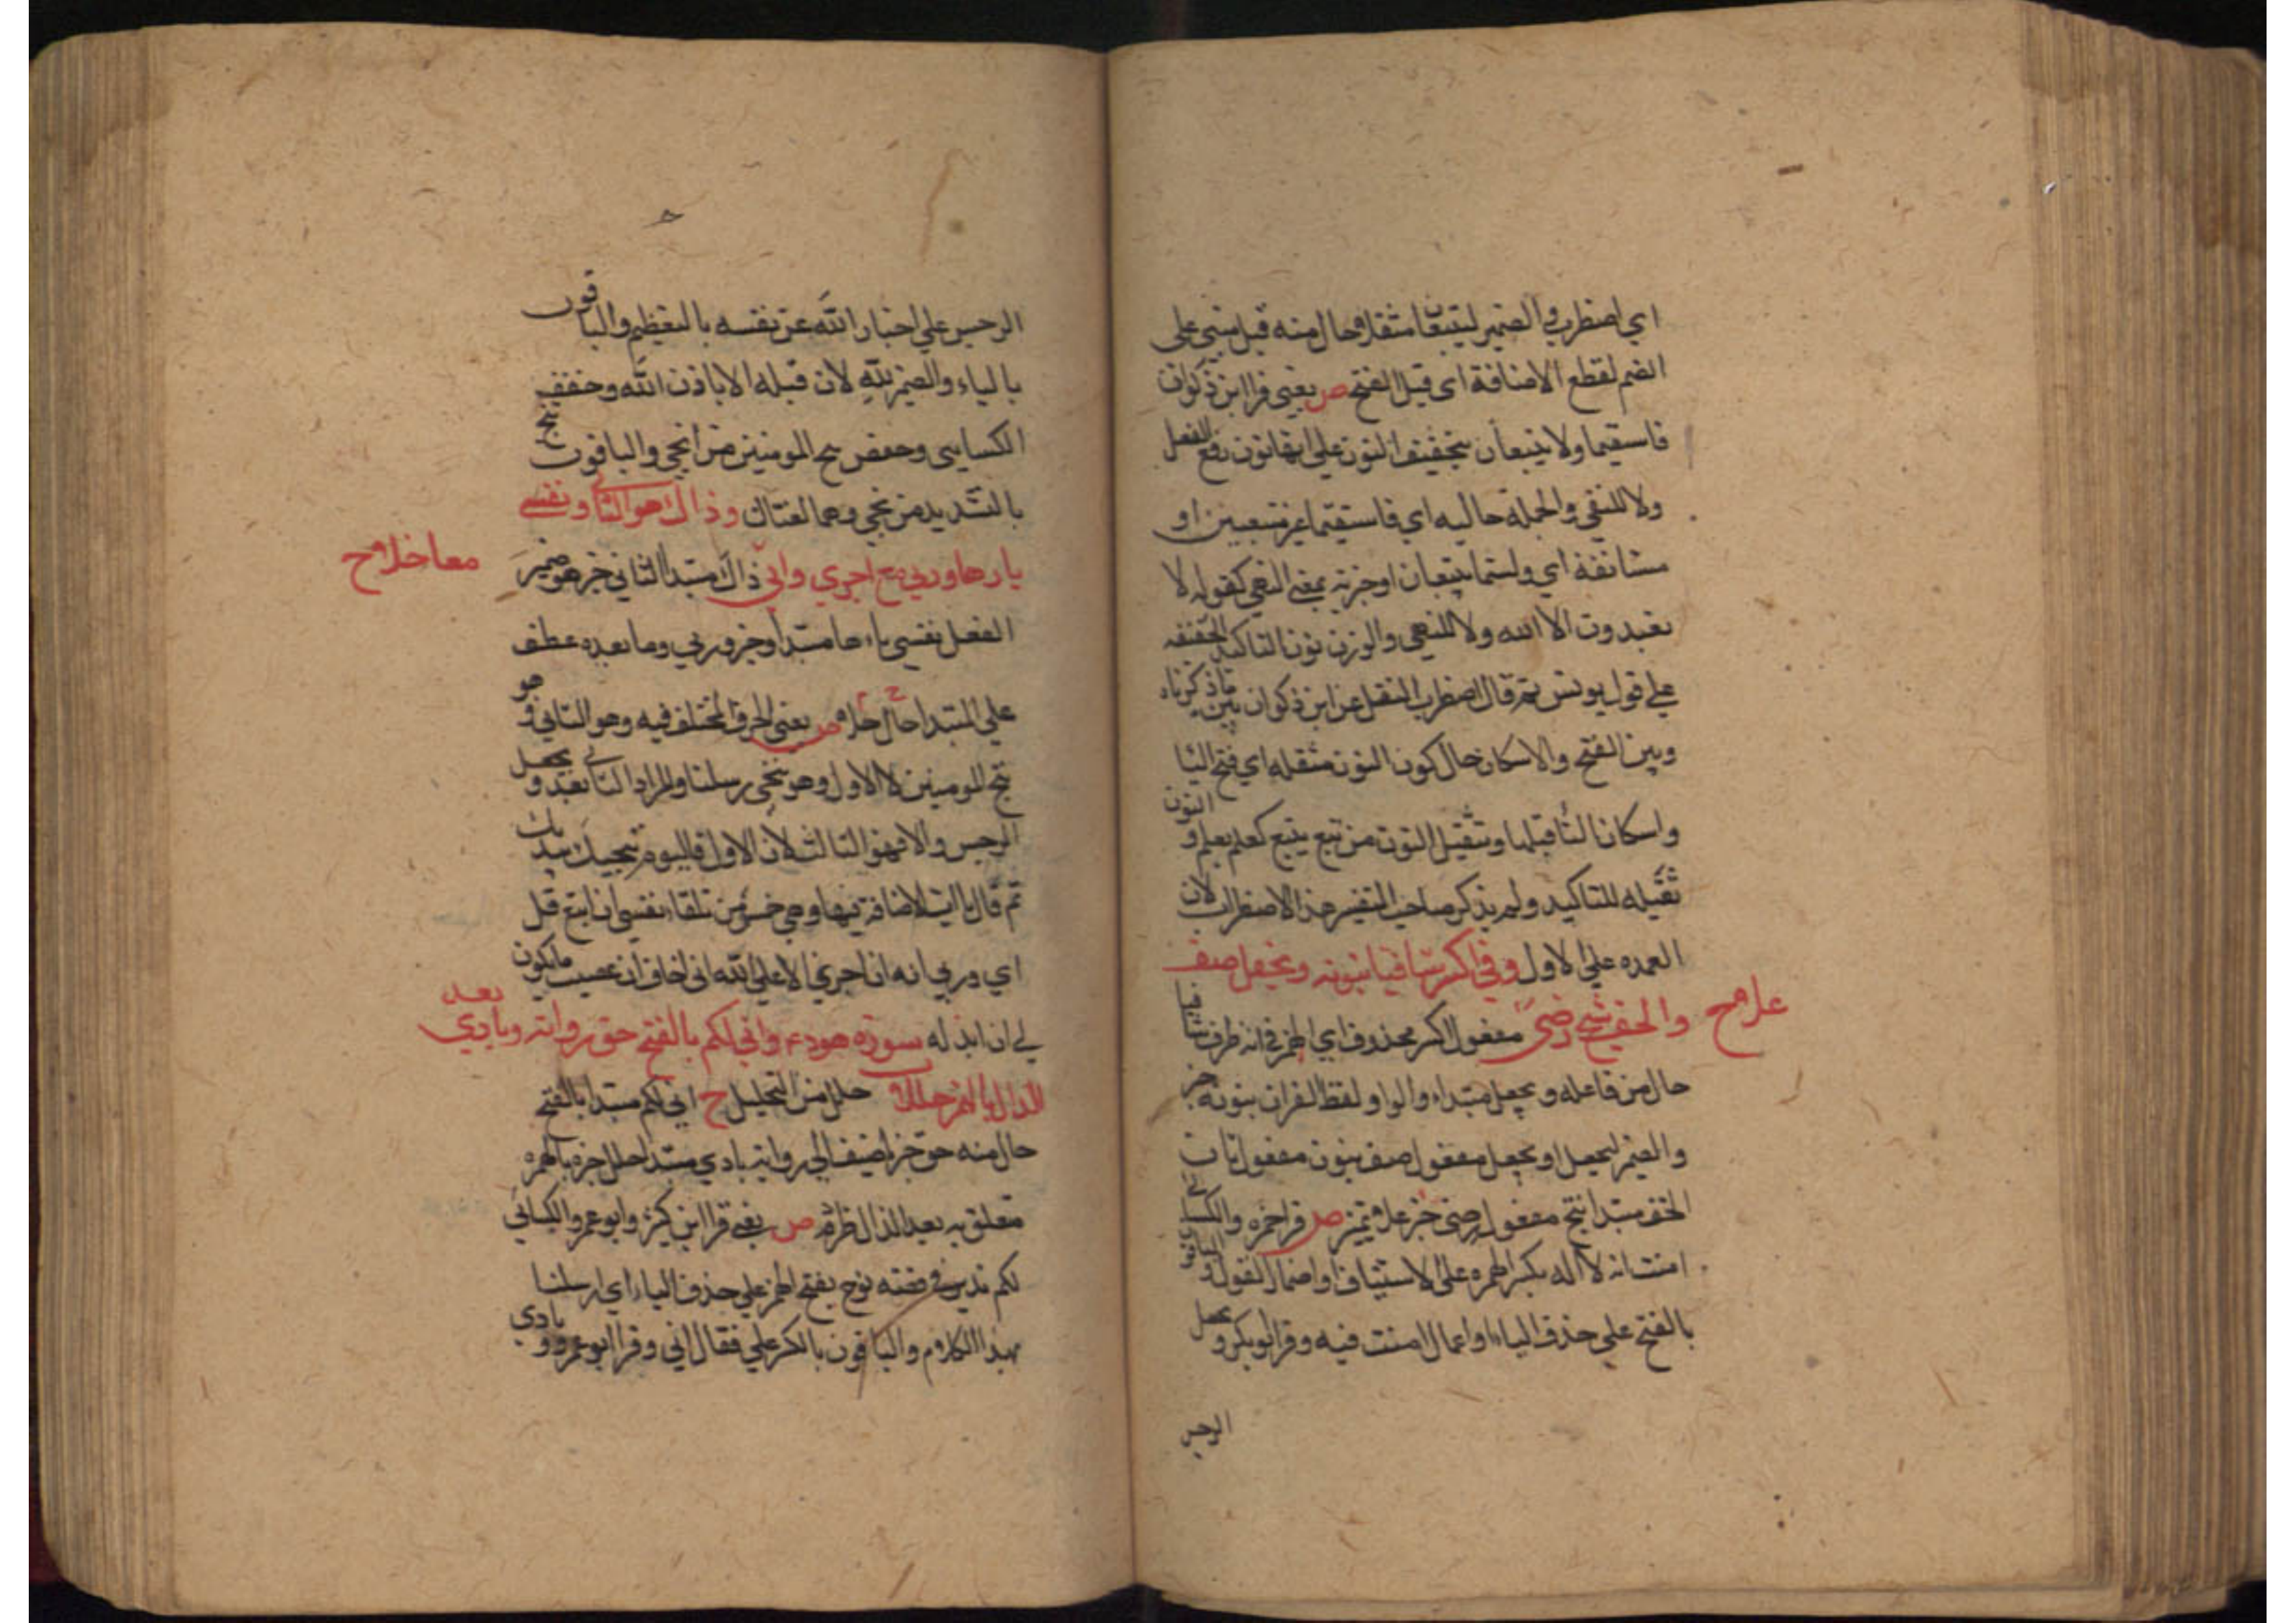 اي اضطرب في الضمير ليتبعان مثقلا حال منه قبل مبني على
الضم لقطع الاضافة اى قبل الفتح ص يعني قرا ابن ذكوان
فاستقيما ولا يتبعان بتخفيف النون على انها نون رفع الفعل
ولا للنفي والجملة حاليه اي فاستقيما غير متبعين او
مستانفة اي ولستما يتبعان او خبرية بمعنى النهي كقوله لا
تعبدون الا الله ولا للنهي والوزن نون التاكيد الخفيفه
على قول يونس ثم قال اضطرب النقل عن ابن ذكوان بين ما ذكرناه
وبين الفتح والاسكان حال كون النون مثقله اي فتح البا
واسكان التا قبلها وتثقيل النون من تبع يتبع كعلم يعلم و النون
ثقيله للتاكيد ولم يذكر صاحب التيسير هذا الاضطراب لان
العمده على الاول وفي انه اكسر شافيا وبنونه ونجعل صف
والخف ننج رضى علا ح مفعول اكسر محذوف اي الهمز في انه ظرف شافيا
حال من فاعله ويجعل مبتداء والواو لفظ القران بنونه خبر
والضمير ليجعل او يجعل مفعول صف بنون مفعول ثان
الخف مبتدا ننج مفعول رضى خبر علا تميز ص قرا حمزه والكسائي
امنت انه لا اله بكسر الهمزه على الاستيناف او اضمار القول و الباقون
بالفتح على حذف الباء او اعمال امنت فيه وقرا ابو بكر و نجعل
الرجس
الرجس على اخبار الله عن نفسه بالتعظيم والباقون
بالياء والضمير لله لان قبله الا باذن الله وخفف
الكسايى وحفص ننج المومنين من انجي والباقون
بالتشديد من نجي وهما لغتان وذاك هو الثاني ونفسي
يارها وربي مع اجري واني معا خلا ح ذاك مبتدا الثاني خبر هو ضمير
الفصل نفسي ياءها مبتدا وخبر وربي وما بعده عطف
على المبتدا حال حلا ص يعنى الحرف المختلف فيه وهو الثاني هو
ننج المومنين لا الاول وهو ننجي رسلنا والمراد الثاني بعد و يجعل
الرجس والا فهو الثالث لان الاول فاليوم ننجيك ببدنك
ثم قال ياات الاضافة فيها وهي خمس من تلقاء نفسي ان اتبع قل
اي وربي انه ان اجري الا على الله اني اخاف ان عصيت ما يكون
لي ان ابدله سورة هود ع واني لكم بالفتح حق رواته وبادي بعد
الدال بالهمز حللا حلل من التحليل ح اني لكم مبتدا بالفتح
حال منه حق خبر اضيف الى رواته بادي مبتدا حلل خبره بالهمزه
متعلق به بعد الدال ظرفه ص يعني قرا ابن كثير وابو عمرو والكسائي
لكم نذير في قصة نوح بفتح الهمز على حذف الباء اي ارسلنا
بهذا الكلام والباقون بالكسر على فقال اني وقرا ابو عمرو و بادي